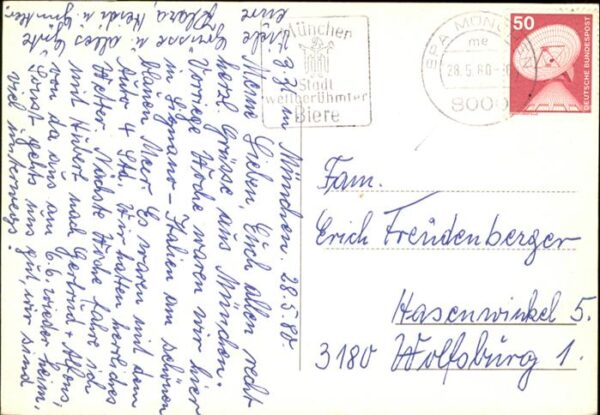 z. Zt. in München. 28.5.80
Meine Lieben, Euch allen recht
herzl. Grüsse aus München.
Vorige Woche waren wir hier
in Lignano - Italien am schönen
blauen Meer. Es waren mit dem
Auto 4 Std. Wir hatten herrliches
Wetter. Nächste Woche fahre ich
mit Hubert nach Gertrud + Alfons,
von da aus am 6.6. wieder heim.
Sonst gehts uns gut, wir sind
viel unterwegs!
Liebe
Grüsse u. alles Gute
eure
Klara, Heidi u. Günter
München
Stadt
weltberühmter
Biere
BPA MÜNCHEN
me
28.5.80
8000
50
DEUTSCHE BUNDESPOST
Fam.
Erich Freudenberger
Hasenwinkel 5.
3180 Wolfsburg 1.